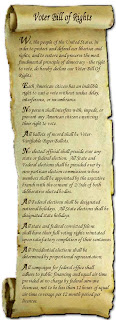 Voter Bill of Rights
We the people of the United States, in
order to protect and defend our libertas and
rights, and to restore and preserve the most
fundamental principle of democracy - the right
to vote, do hereby declare our Voter Bill Of
Rights.
Each American citizen has an inalible
right to cast a vote without undue delay,
interference, or incumbrance.
No person shall interfere with, impede, or
prevent any American citizen exercising
their right to vote.
All ballots of record shall be Voter
Verifiable Paper Ballots.
No elected official shall preside over any
state or federal election. All State and
Federal elections shall be presided over by
non-partisan election commission whose
members shall be appointed by the executive
branch with the consent of 2/3rds of both
deliberative elected bodies.
All Federal elections shall be designated
national holidays. All State elections shall be
designated state holidays.
All State and federal convicted felons
shall have their full voting rights reinstated
upon satisfactory completion of their sentences.
All Presidential elections shall be
determined by proportional representation.
All campaigns for federal office shall
be limited to public financing and equal air time
provided at no charge by federal airwave
licensees, not to be less than
air time coverage per 12 month period per
licensee.